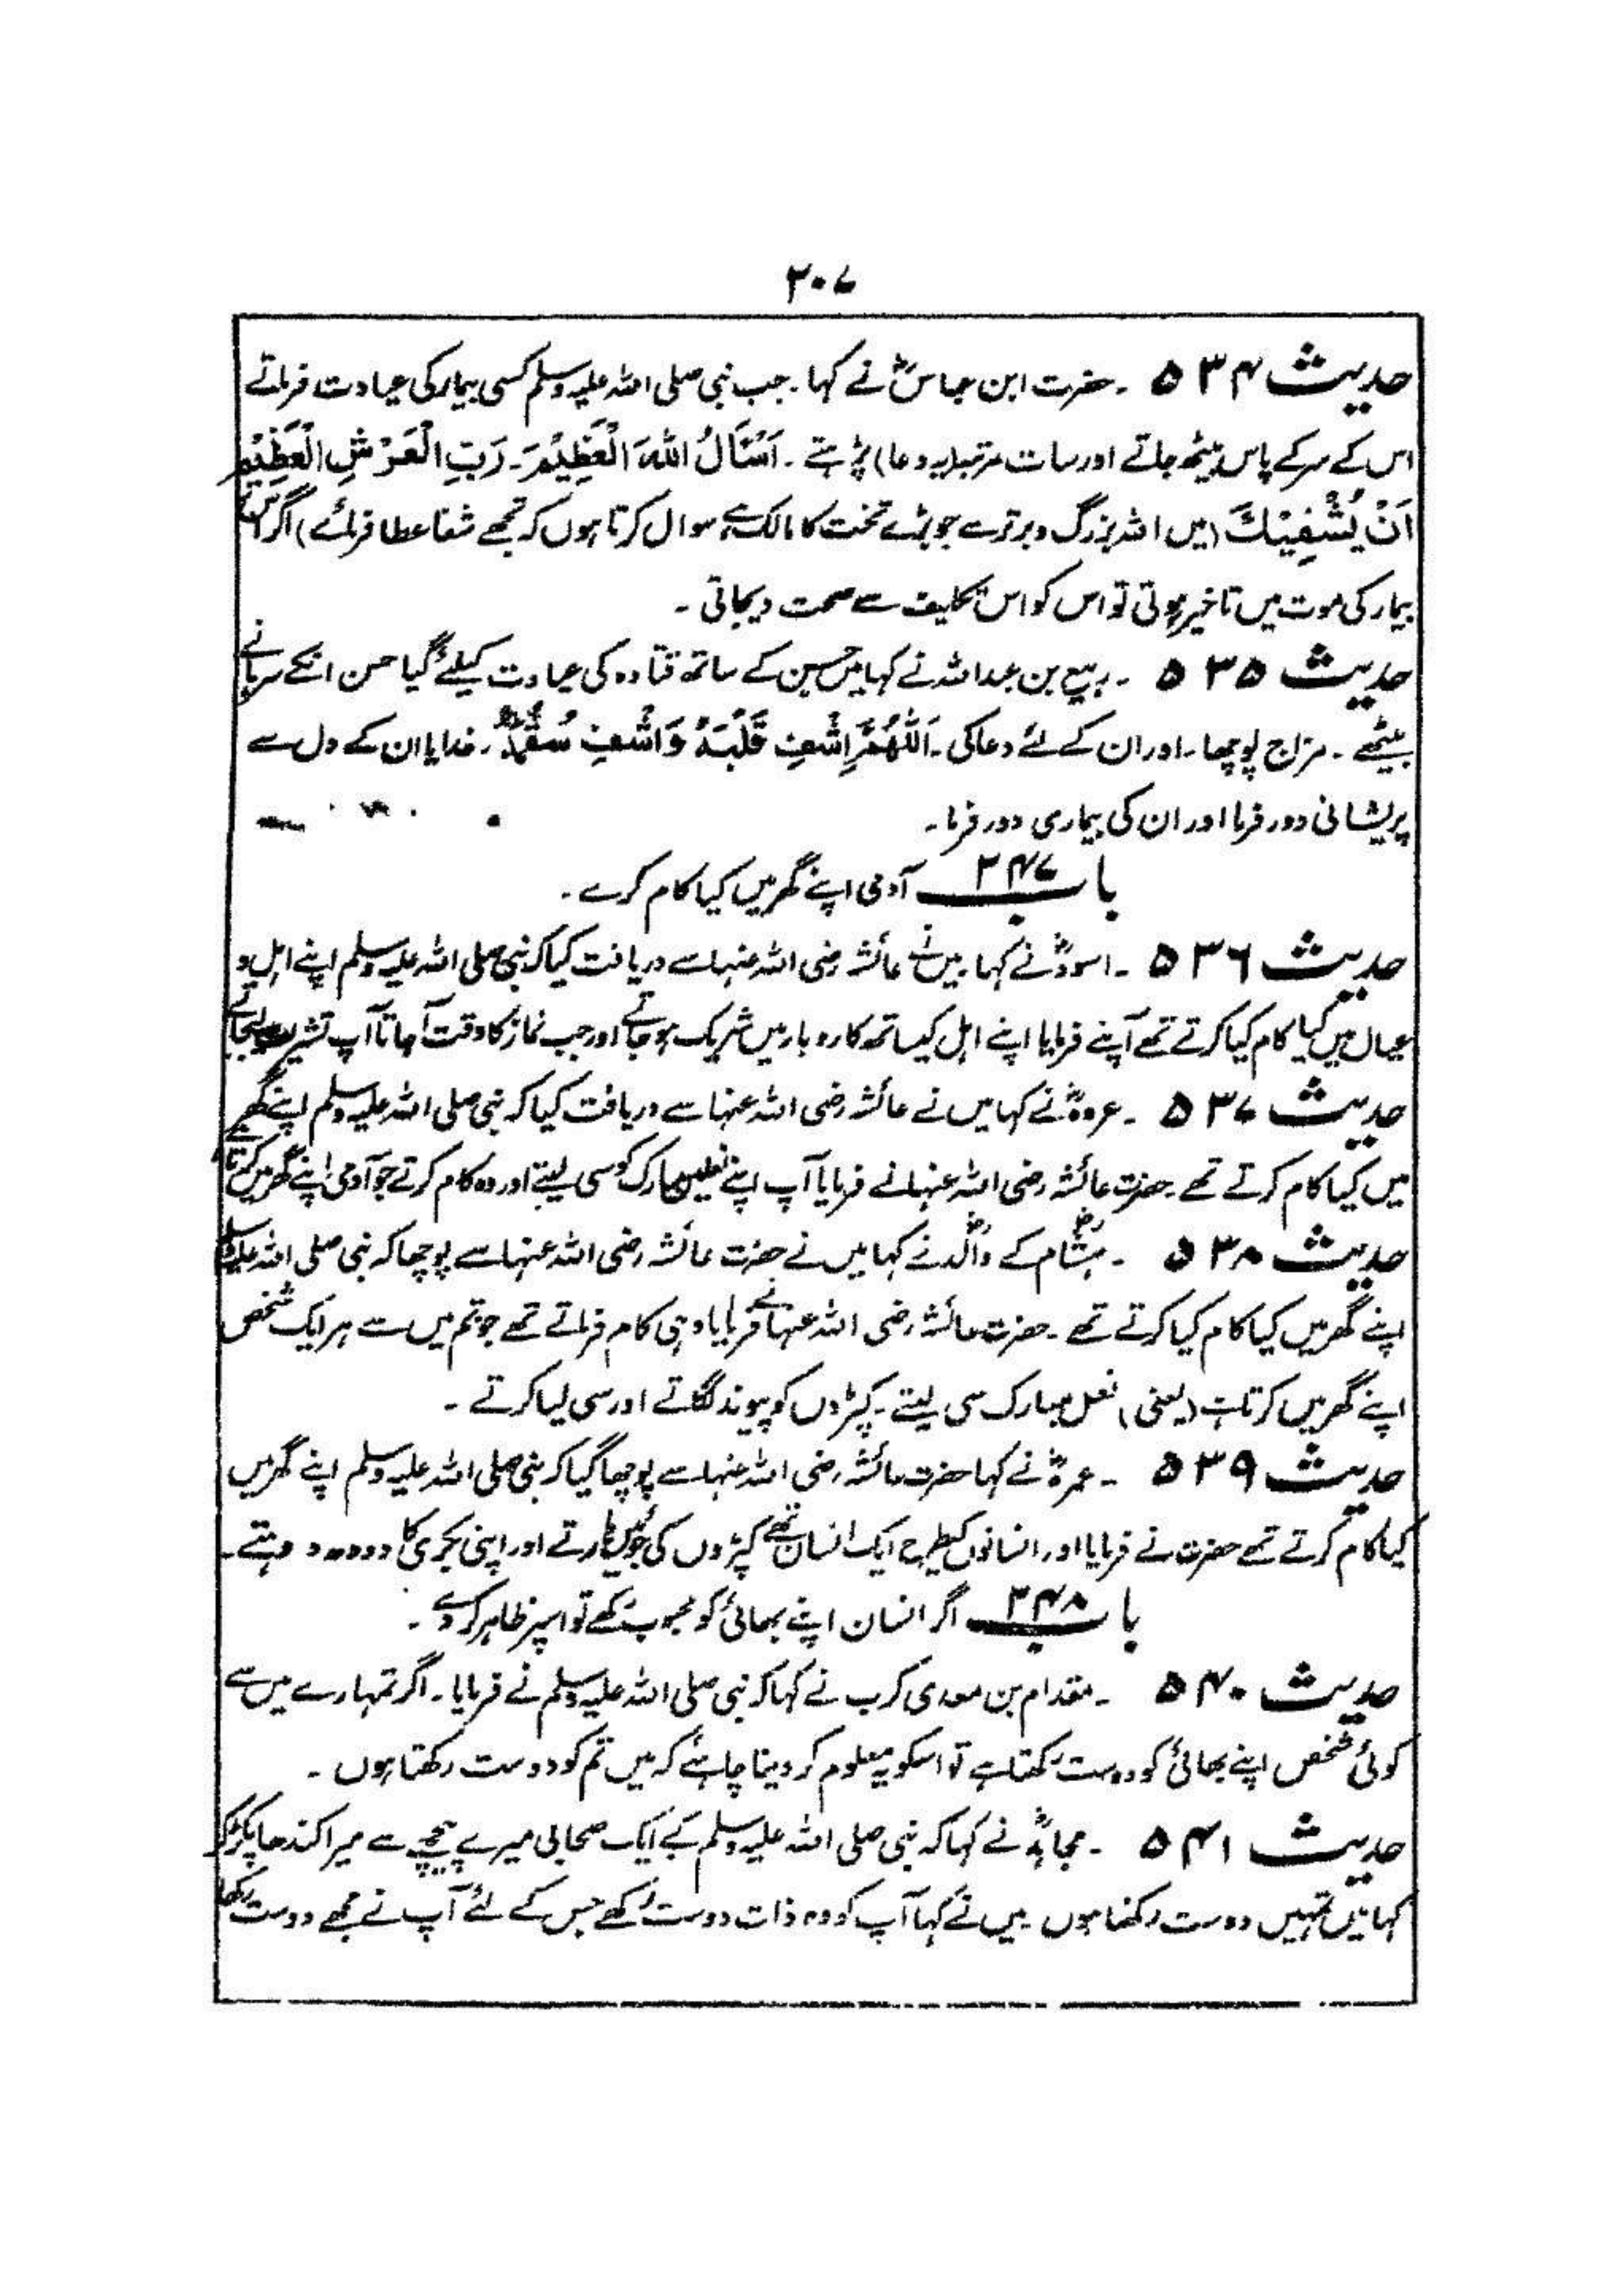 ۲۰۷
حدیث ۵۳۴ ۔ حضرت ابن عباسؓ نے کہا۔ جب نبی صلی اللہ علیہ وسلم کسی بیمار کی عیادت فرماتے
اس کے سر کے پاس بیٹھ جاتے اور سات مرتبہ (یہ دعا) پڑہتے ۔ اَسْئَالُ اللهَ الْعَظِیْمَ۔ رَبِّ الْعَرْشِ الْعَظِیْمِ
اَنْ یُشْفِیْكَ (میں اللہ بزرگ و برتر سے جو بڑے تخت کا مالک ہے سوال کرتا ہوں کہ تجھے شفا عطا فرمائے) اگر
بیمار کی موت میں تاخیر ہوتی تو اس کو اس تکلیف سے صحت دیجاتی ۔
حدیث ۵۳۵ ۔ ربیع بن عبداللہ نے کہا میں حسین کے ساتھ قتادہ کی عیادت کیلئے گیا حسن انکے سرہانے
بیٹھے ۔ مزاج پوچھا ۔ اور ان کے لئے دعا کی ۔ اَللّٰهُمَّ اِشْفِ قَلْبَهٗ وَاشْفِ سُقْمَهٗ ۔ خدایا ان کے دل سے
پریشانی دور فرما اور ان کی بیماری دور فرما ۔
باب ۲۴۷ آدمی اپنے گھر میں کیا کام کرے ۔
حدیث ۵۳۶ ۔ اسودؓ نے کہا ۔ میں نے عائشہ رضی اللہ عنہا سے دریافت کیا کہ نبی صلی اللہ علیہ وسلم اپنے اہل و
عیال میں کیا کام کیا کرتے تھے آپنے فرمایا اپنے اہل کیساتھ کاروبار میں شریک ہو جاتے اور جب نماز کا وقت آجاتا آپ تشریف لیجاتے
حدیث ۵۳۷ ۔ عروہؓ نے کہا میں نے عائشہ رضی اللہ عنہا سے دریافت کیا کہ نبی صلی اللہ علیہ وسلم اپنے گھر
میں کیا کام کرتے تھے ۔ حضرت عائشہ رضی اللہ عنہا نے فرمایا آپ اپنے نعلین مبارک کو سی لیتے اور وہ کام کرتے جو آدمی اپنے گھر میں کرتا
حدیث ۵۳۸ ۔ ہشامؓ کے والدؓ نے کہا میں نے حضرت عائشہ رضی اللہ عنہا سے پوچھا کہ نبی صلی اللہ علیہ وسلم
اپنے گھر میں کیا کام کیا کرتے تھے ۔ حضرت عائشہ رضی اللہ عنہا نے فرمایا وہی کام فرماتے تھے جو تم میں سے ہر ایک شخص
اپنے گھر میں کرتا ہے (یعنی) نعل مبارک سی لیتے ۔ کپڑوں کو پیوند لگاتے اور سی لیا کرتے ۔
حدیث ۵۳۹ ۔ عمرہؓ نے کہا حضرت عائشہ رضی اللہ عنہا سے پوچھا گیا کہ نبی صلی اللہ علیہ وسلم اپنے گھر میں
کیا کام کرتے تھے حضرت نے فرمایا اور انسانوں کیطرح ایک انسان تھے کپڑوں کی جوئیں مارتے اور اپنی بکری کا دودھ دوہتے ۔
باب ۲۴۸ اگر انسان اپنے بھائی کو محبوب رکھے تو اسپر ظاہر کردے ۔
حدیث ۵۴۰ ۔ مقدام بن معدی کرب نے کہا کہ نبی صلی اللہ علیہ وسلم نے فرمایا ۔ اگر تمہارے میں سے
کوئی شخص اپنے بھائی کو دوست رکھتا ہے تو اسکو یہ معلوم کر دینا چاہئے کہ میں تم کو دوست رکھتا ہوں ۔
حدیث ۵۴۱ ۔ مجاہدؓ نے کہا کہ نبی صلی اللہ علیہ وسلم کے ایک صحابی میرے پیچھے سے میرا کندھا پکڑ کر
کہا میں تمہیں دوست رکھتا ہوں ۔ میں نے کہا آپ کو وہ ذات دوست رکھے جس کے لئے آپ نے مجھے دوست رکھا